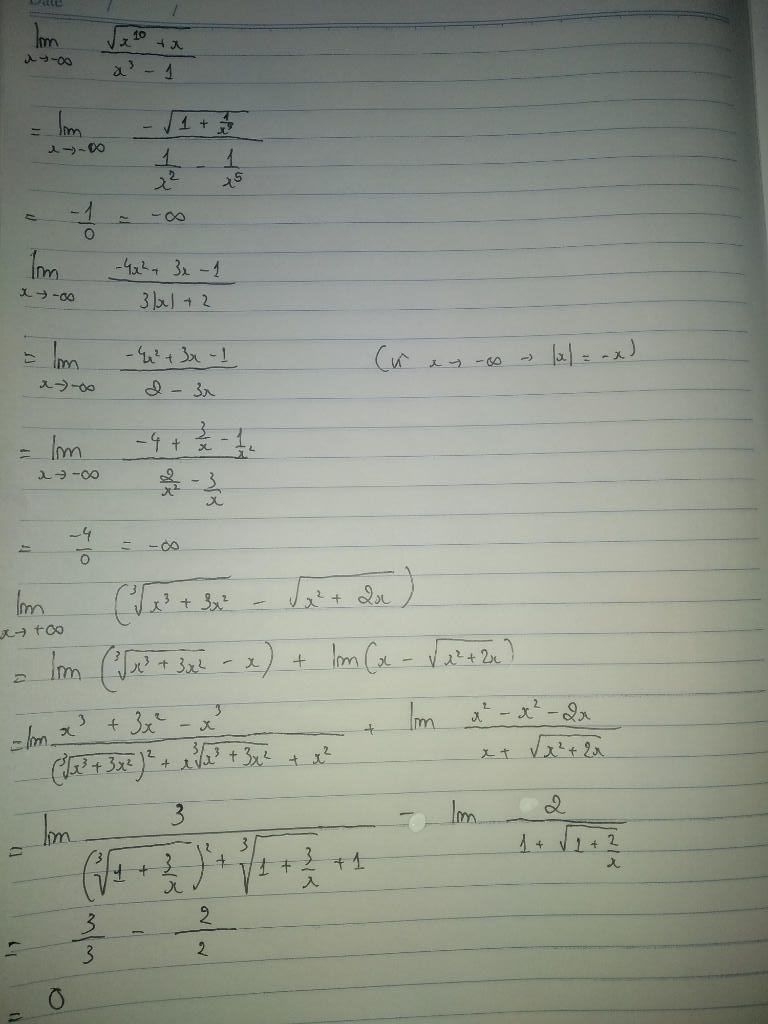 Date / /
lim x→-∞ √(x¹⁰ + x) / (x³ - 1)
= lim x→-∞ -√(1 + 1/x⁹) / (1/x² - 1/x⁵)
= -1/0 = -∞
lim x→-∞ (-4x² + 3x - 1) / (3|x| + 2)
= lim x→-∞ (-4x² + 3x - 1) / (2 - 3x) (vì x → -∞ → |x| = -x)
= lim x→-∞ (-4 + 3/x - 1/x²) / (2/x² - 3/x)
= -4/0 = -∞
lim x→+∞ (∛(x³ + 3x²) - √(x² + 2x))
= lim (∛(x³ + 3x²) - x) + lim (x - √(x² + 2x))
= lim (x³ + 3x² - x³) / ((∛(x³ + 3x²))² + x∛(x³ + 3x²) + x²) + lim (x² - x² - 2x) / (x + √(x² + 2x))
= lim 3 / ((∛(1 + 3/x))² + ∛(1 + 3/x) + 1) - lim 2 / (1 + √(1 + 2/x))
= 3/3 - 2/2
= 0